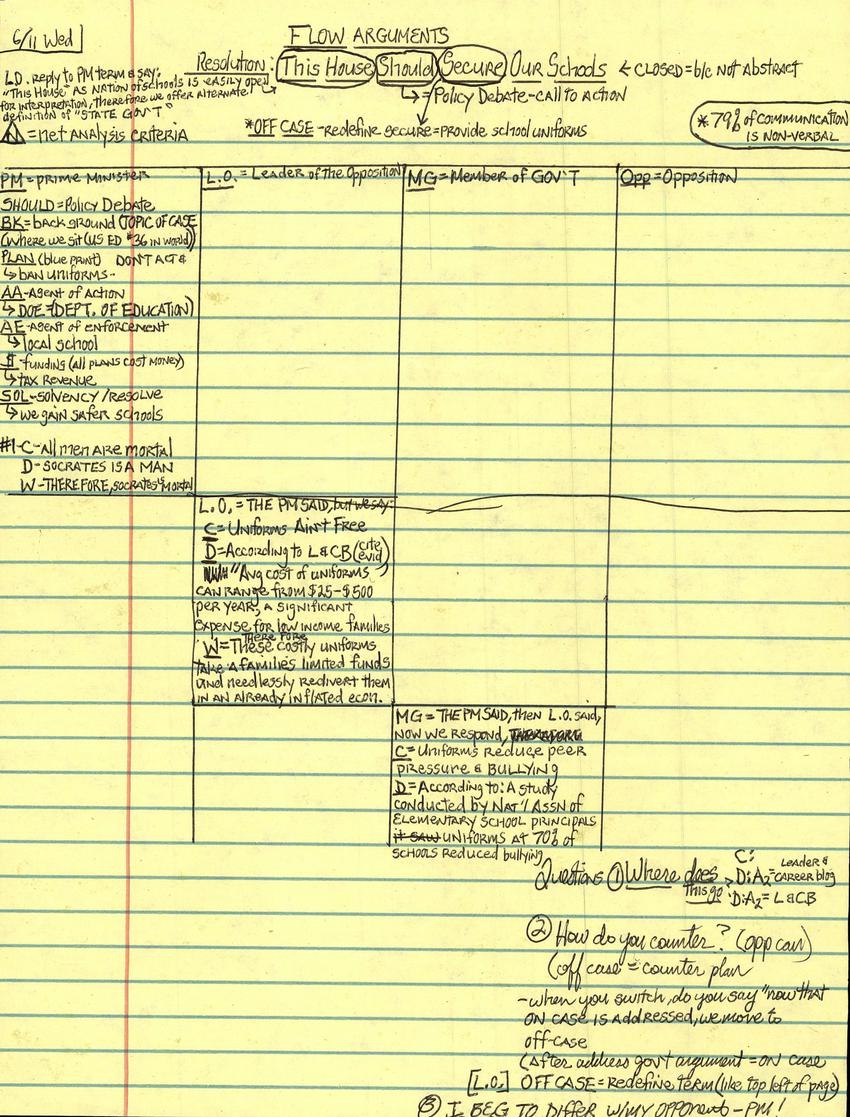 6/11 Wed
FLOW ARGUMENTS
Resolution: This House Should Secure Our Schools ← CLOSED = b/c NOT ABSTRACT
↳ = Policy Debate - call to ACTION
LD. reply to PM term & say:
"This House" AS NATION of schools is easily open
for interpretation, therefore we offer alternate
definition of "STATE GOV'T
= net analysis criteria
*OFF CASE - Redefine secure = Provide school uniforms
*79% of communication
is NON-VERBAL
PM = PRIME MINISTER
SHOULD = Policy Debate
BK = back ground (TOPIC OF CASE
(where we sit (US ED #36 IN world))
PLAN (blue print) DON'T ACT &
↳ BAN UNIFORMS -
AA - Agent of Action
↳ DOE = (DEPT. OF EDUCATION)
AE - Agent of enforcement
↳ local school
$ - funding (all PLANS COST MONEY)
↳ TAX REVENUE
SOL - SOLVENCY / RESOLVE
↳ we gain safer schools
#1 - C - All men are mortal
D - SOCRATES IS A MAN
W - THEREFORE, SOCRATES IS MORTAL
L.O. = Leader of the Opposition
MG = Member of GOV'T
Opp = Opposition
L.O. = THE PM SAID, but we say:
C = Uniforms Ain't Free
D = According to L & CB (cite evid)
"Avg cost of uniforms
CAN RANGE from $25-$500
per year, a significant
expense for low income families
THEREFORE
W = These costly uniforms
take a families limited funds
and needlessly redivert them
in an Already inflated econ.
MG = THE PM SAID, then L.O. said,
NOW we Respond, THEREFORE
C = Uniforms Reduce peer
Pressure & BULLYING
D = According to: A study
conducted by Nat'l Assn of
Elementary School Principals
it saw UNIFORMS AT 70% of
schools reduced bullying
Questions ① Where does
this go
C:
D: A2 = Leader & career blog
D: A2 = L & CB
② How do you counter? (opp can)
(off case = counter plan
- when you switch, do you say "now that
ON CASE IS ADDRESSED, we move to
off-case
(After address gov't argument = ON CASE
[L.O.] OFF CASE = Redefine term (like top left of page)
③ I BEG TO DIFFER w/MY OPPONENT - PM!